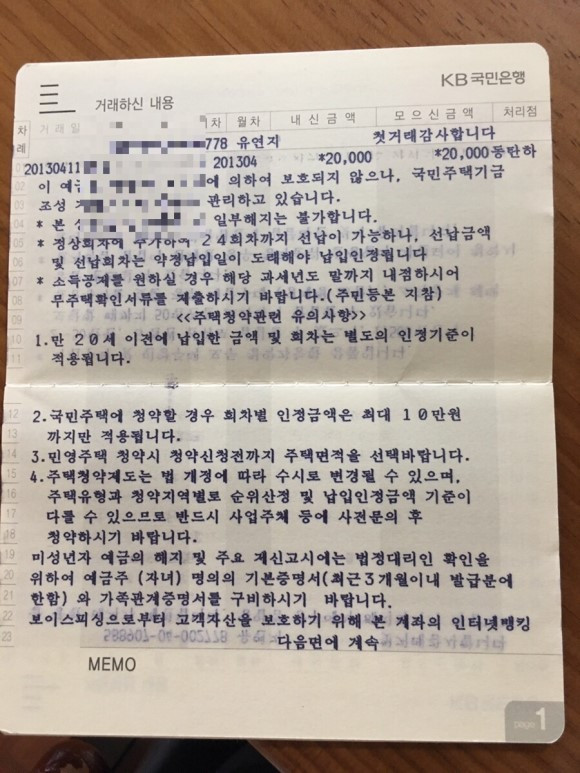 KB국민은행
거래하신 내용
차례 거래일 차 월차 내신금액 모으신금액 처리점
778 유연지 첫거래감사합니다
20130411 201304 *20,000 *20,000동탄하
02 이 예금 에 의하여 보호되지 않으나, 국민주택기금
03 조성 관리하고 있습니다.
04 * 본 일부해지는 불가합니다.
05 * 정상회차에 추가하여 24회차까지 선납이 가능하나, 선납금액
06 및 선납회차는 약정납입일이 도래해야 납입인정됩니다
07 * 소득공제를 원하실 경우 해당 과세년도 말까지 내점하시어
08 무주택확인서류를 제출하시기 바랍니다.(주민등본 지참)
09 <<주택청약관련 유의사항>>
10 1.만 20세 이전에 납입한 금액 및 회차는 별도의 인정기준이
11 적용됩니다.
12 2.국민주택에 청약할 경우 회차별 인정금액은 최대 10만원
13 까지만 적용됩니다.
14 3.민영주택 청약시 청약신청전까지 주택면적을 선택바랍니다.
15 4.주택청약제도는 법 개정에 따라 수시로 변경될 수 있으며,
16 주택유형과 청약지역별로 순위산정 및 납입인정금액 기준이
17 다를 수 있으므로 반드시 사업주체 등에 사전문의 후
18 청약하시기 바랍니다.
19 미성년자 예금의 해지 및 주요 재신고시에는 법정대리인 확인을
20 위하여 예금주 (자녀) 명의의 기본증명서(최근3개월이내 발급분에
21 한함) 와 가족관계증명서를 구비하시기 바랍니다.
22 보이스피싱으로부터 고객자산을 보호하기 위해 본 계좌의 인터넷뱅킹
23 다음면에 계속
MEMO
page 1